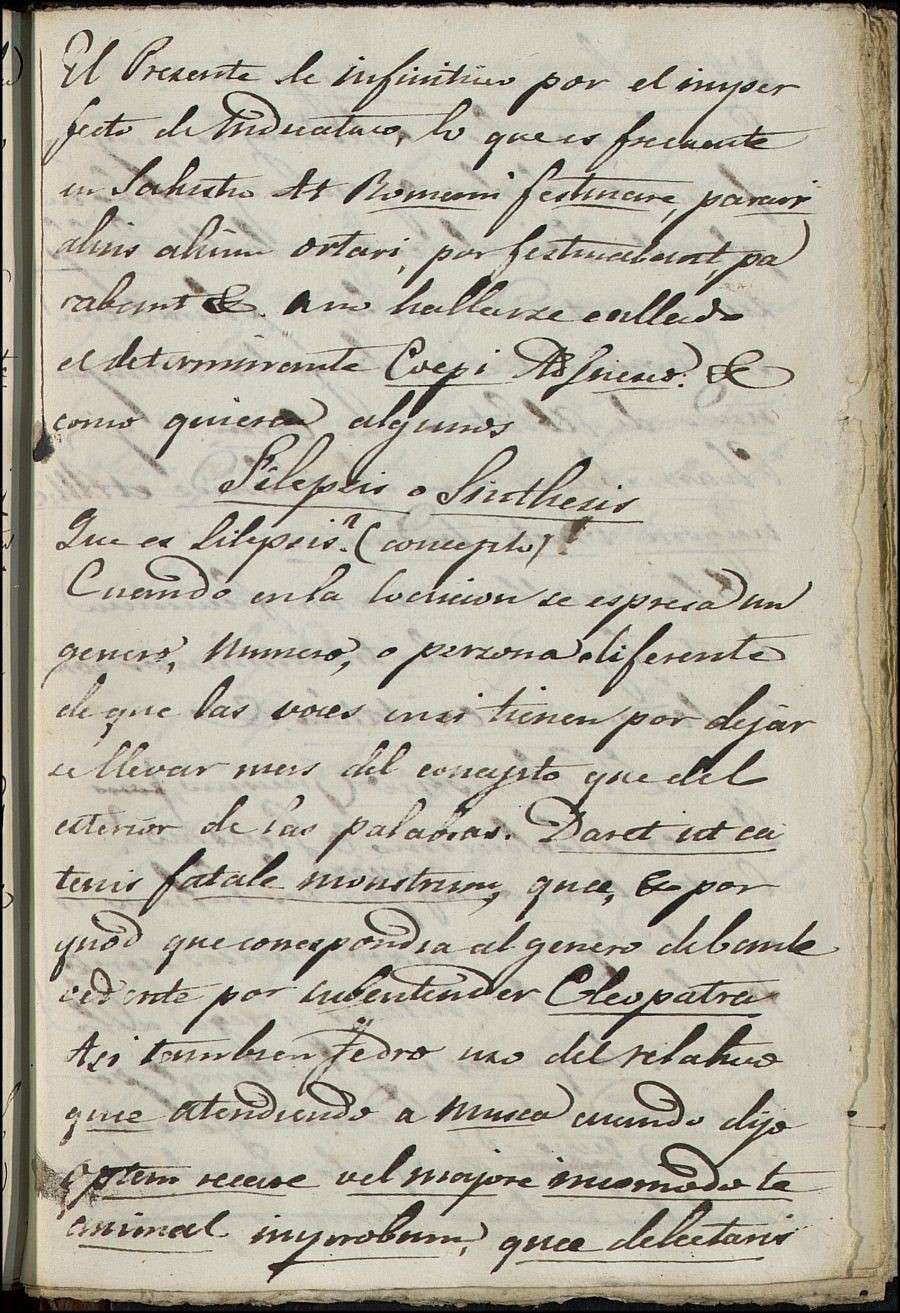 El Presente de infinitivo por el imper
fecto de Indicativo, lo que es frecuente
en Salustio At Romani festinare, parari
alius alium ortari, por festinabant, pa
rabant &. a no hallarse callado
el determinante Coepi &
como quieren algunos
Silepsis o Sinthesis
Que es Silepsis? (concepto)
Cuando en la locucion se espresa un
genero, numero, o persona diferente
de que las voces en si tienen por dejar
se llevar mas del concepto que del
esterior de las palabras. Daret ut ca
tenis fatale monstrum, quae, & por
quod que correspondia al genero del ante
cedente por subentender Cleopatra
Asi tambien Fedro uso del relativo
quae atendiendo a musca cuando dijo
optem necare vel majore incomodo te
animal improbum, quae delectaris